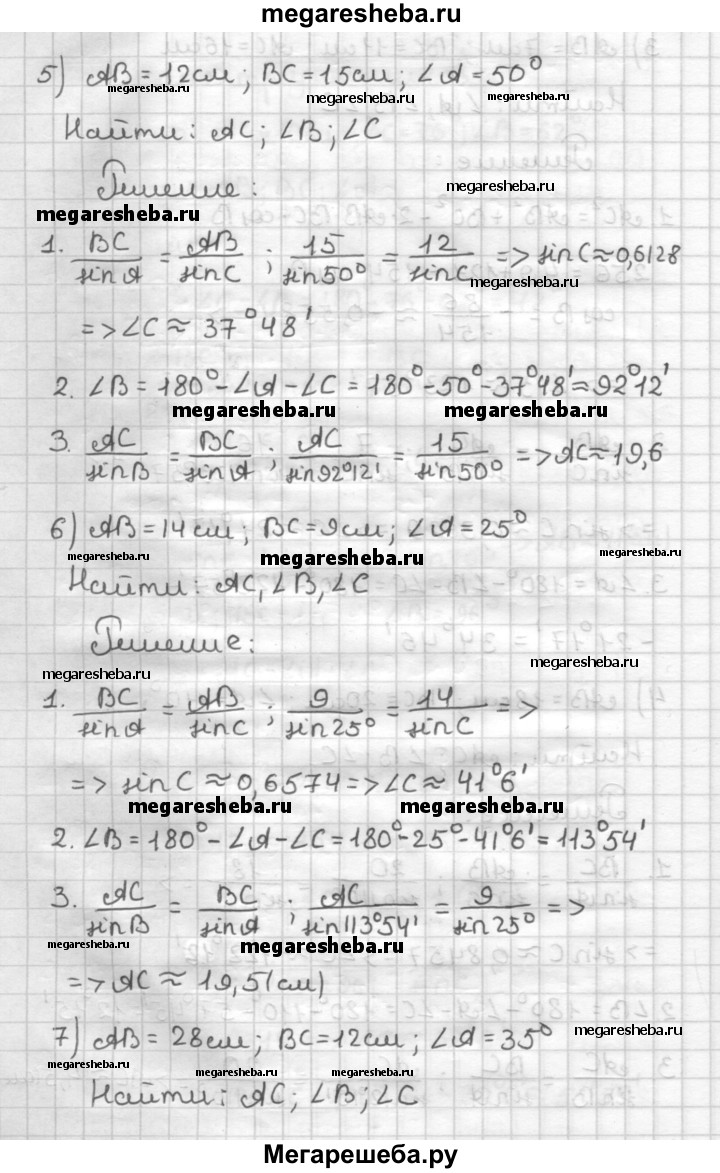 megaresheba.ru
5) AB = 12 см; BC = 15 см; ∠A = 50°
megaresheba.ru megaresheba.ru megaresheba.ru
Найти: AC; ∠B; ∠C
Решение:
megaresheba.ru
megaresheba.ru
1. BC/sin A = AB/sin C; 15/sin 50° = 12/sin C => sin C ≈ 0,6128
=> ∠C ≈ 37°48'
2. ∠B = 180° - ∠A - ∠C = 180° - 50° - 37°48' = 92°12'
megaresheba.ru megaresheba.ru
3. AC/sin B = BC/sin A; AC/sin 92°12' = 15/sin 50° => AC ≈ 19,6
6) AB = 14 см; BC = 9 см; ∠A = 25°
megaresheba.ru megaresheba.ru megaresheba.ru
Найти: AC, ∠B, ∠C
Решение:
megaresheba.ru megaresheba.ru
1. BC/sin A = AB/sin C; 9/sin 25° = 14/sin C =>
=> sin C ≈ 0,6574 => ∠C ≈ 41°6'
megaresheba.ru megaresheba.ru
2. ∠B = 180° - ∠A - ∠C = 180° - 25° - 41°6' = 113°54'
3. AC/sin B = BC/sin A; AC/sin 113°54' = 9/sin 25° =>
megaresheba.ru megaresheba.ru
=> AC ≈ 19,5 (см)
7) AB = 28 см; BC = 12 см; ∠A = 35°
megaresheba.ru
megaresheba.ru megaresheba.ru megaresheba.ru
Найти: AC; ∠B; ∠C
Мегарешеба.ру